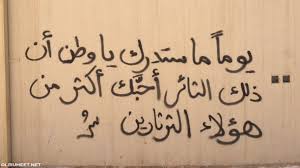 يوماً ما ستدرك يا وطن أن
ذلك الثائر أحبَّك أكثر من
هؤلاء الثرثارين
OLRUHEET.NET